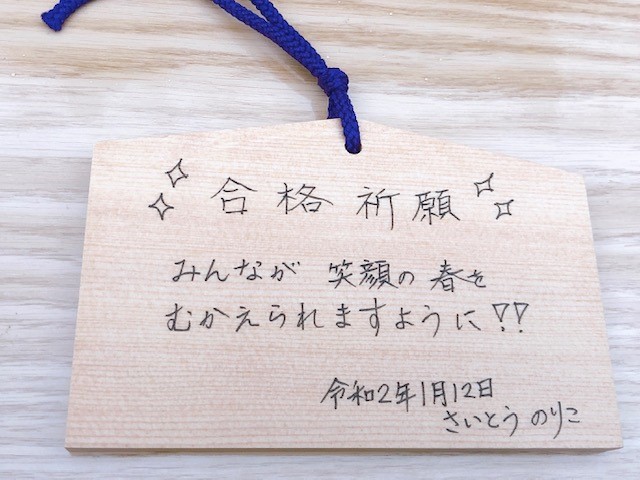 合格祈願
みんなが 笑顔の 春を
むかえられますように!!
令和2年1月12日
さいとう のりこ